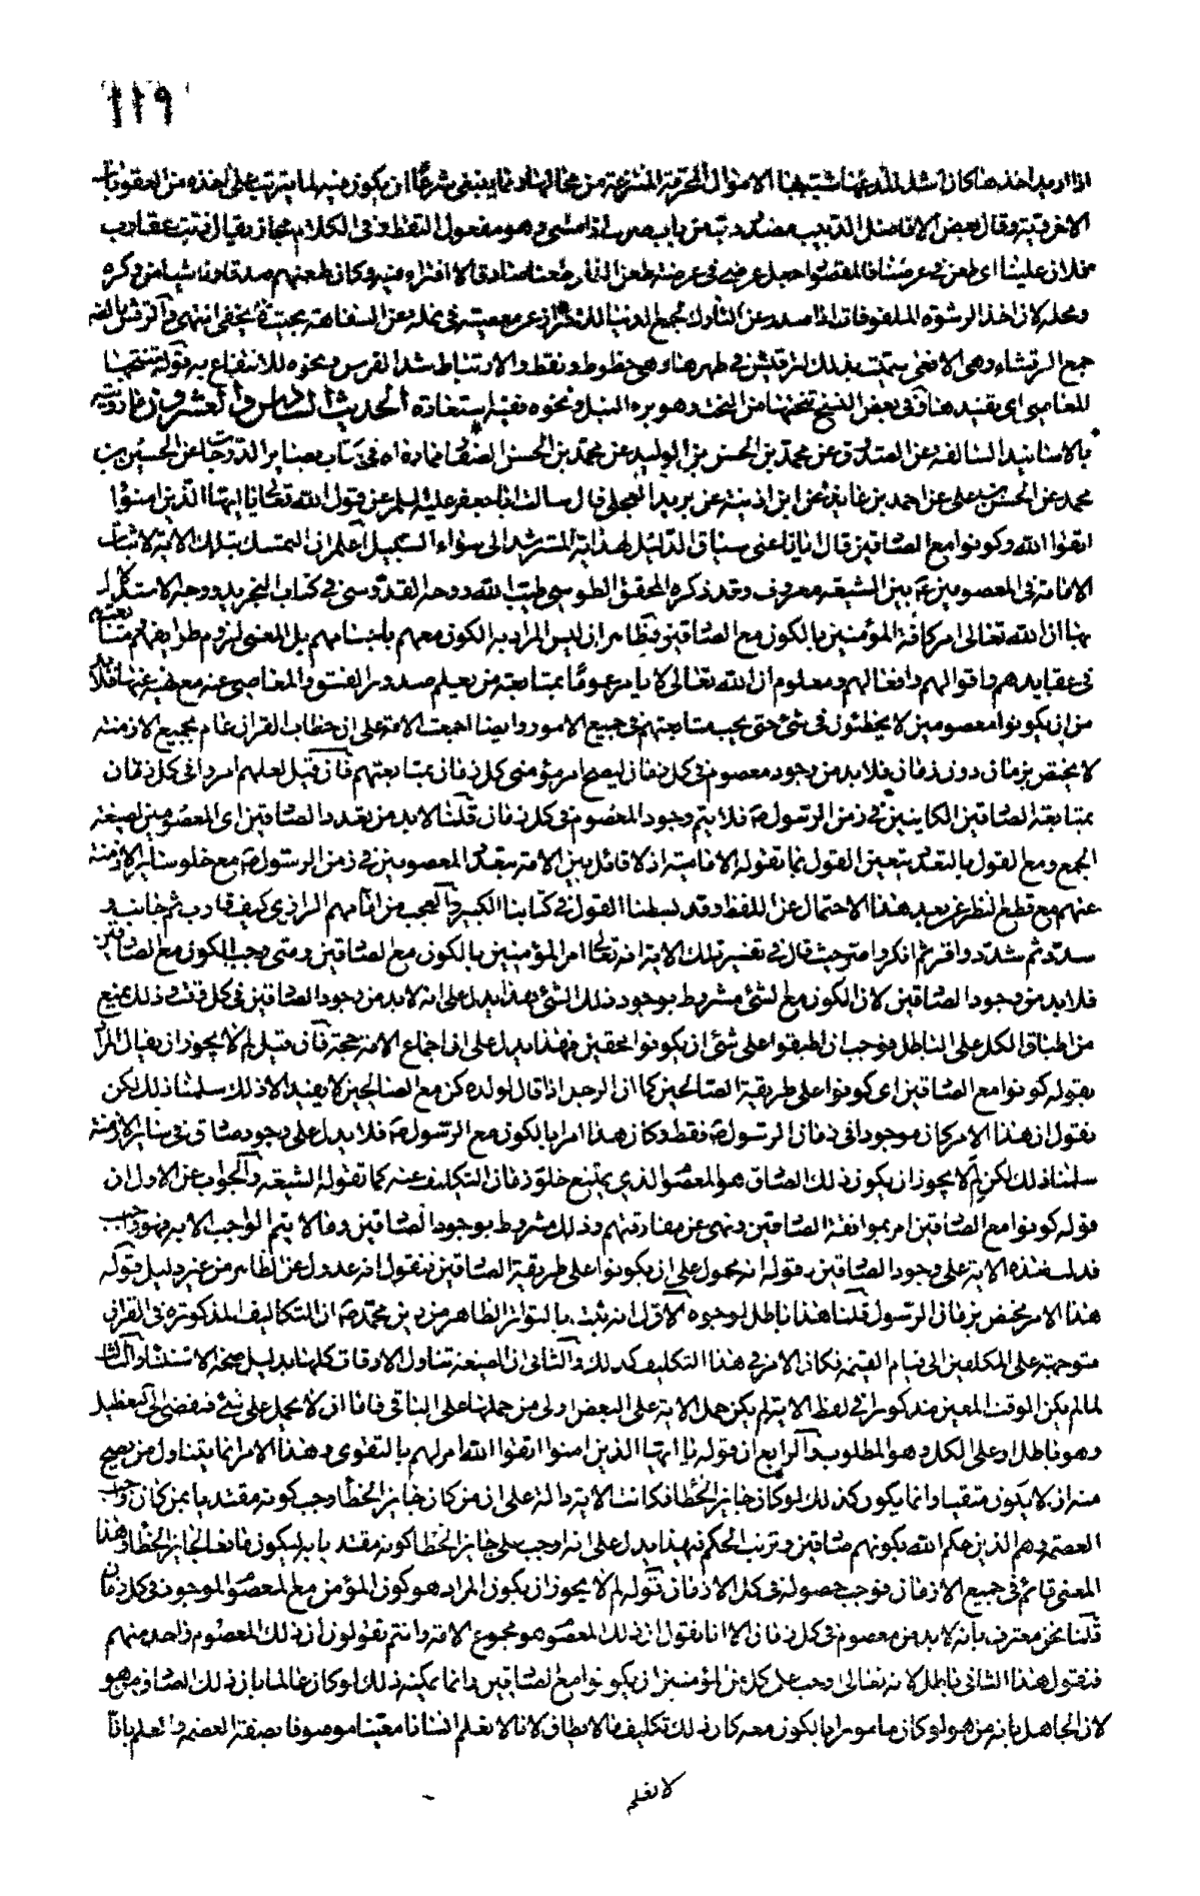 ١١٩
اذا اريد اخذها كان اشد للدغها شبيهها الاموال المحرمة المنتزعة من محالها وانما ينبغي شرعا ان يكون منيها لما يترتب على اخذه من العقوبات
الاخروية وقال بعض الافاضل الدبيب مصدر دب من باب ضرب اذا مشى وهو مفعول التقط وفي الكلام مجاز يقال دبت عقارب
فلان علينا اى طعن في عرضنا فالمقصود اجعل عرضي في عرضة طعن
ومحله لان اخذ الرشوة الملفوفات اذا صدر عن التارك لجميع الدنيا
جمع الرقشاء وهي الافعى سميت بذلك لترقيش في ظهرها وهي خطوط ونقط والارتباط شد الفرس ونحوه للانتفاع به قوله تنتهبها
للمعاصى اى بقيد هناك وفي بعض النسخ تنحتها من النحت وهو بري النبل ونحوه ففيه استعارة الحديث السادس والعشرون ما رويته
بالاسانيد السالفة عن الصدوق عن محمد بن الحسن بن الوليد عن محمد بن الحسن الصفار فيما رواه في كتاب بصاير الدرجات عن الحسين بن
محمد عن الحسن بن علي عن احمد بن عايذ عن ابن اذينة عن بريد العجلي قال سالت ابا جعفر عليه السلم عن قول الله تعالى يا ايها الذين امنوا
اتقوا الله وكونوا مع الصادقين قال ايانا عنى سياق الدليل لهداية المسترشد الى سواء السبيل اعلم ان التمسك بتلك الاية لاثبات
الامامة في المعصومين ع بين الشيعة معروف وقد ذكره المحقق الطوسي طيب الله روحه القدوسي في كتاب التجريد ووجه الاستدلال
بها ان الله تعالى امر كافة المؤمنين بالكون مع الصادقين وظاهر ان ليس المراد به الكون معهم باجسامهم بل المعنى لزوم طرايقهم ومتابعتهم
في عقايدهم واقوالهم وافعالهم ومعلوم ان الله تعالى لا يامر عموما بمتابعة من يعلم صدور الفسق والمعاصي عنه مع نهيه عنها فلا بد
من ان يكونوا معصومين لا يخطئون في شئ حتى يجب متابعتهم في جميع الامور وايضا اجمعت الامة على ان خطاب القران عام لجميع الازمنة
لا يختص بزمان دون زمان فلا بد من وجود معصوم في كل زمان ليصح امر مؤمنى كل زمان بمتابعتهم فان قيل لعلهم امروا في كل زمان
بمتابعة الصادقين الكاينين في زمن الرسول ص فلا يتم وجود المعصوم في كل زمان قلنا لا بد من تعدد الصادقين اى المعصومين لصيغة
الجمع ومع القول بالتعدد يتعين القول بما تقوله الامامية اذ لا قائل بين الامة بتعدد المعصومين في زمن الرسول ص مع خلو ساير الازمنة
عنهم مع قطع النظر عن بعد هذا الاحتمال عن اللفظ وقد بسطنا القول في كتابنا الكبير والعجب من امامهم الرازي كيف قارب ثم جانب و
سدد ثم شدد واقر ثم انكر واصر حيث قال في تفسير تلك الاية انه تعالى امر المؤمنين بالكون مع الصادقين ومتى وجب الكون مع الصادقين
فلا بد من وجود الصادقين لان الكون مع الشئ مشروط بوجود ذلك الشئ فهذا يدل على انه لا بد من وجود الصادقين في كل وقت وذلك يمنع
من اطباق الكل على الباطل فوجب ان اطبقوا على شئ ان يكونوا محقين فهذا يدل على ان اجماع الامة حجة فان قيل لم لا يجوز ان يقال المراد
بقوله كونوا مع الصادقين اى كونوا على طريقة الصالحين كما ان الرجل اذا قال لولده كن مع الصالحين لا يفيد الا ذلك سلمنا ذلك لكن
نقول ان هذا الامر كان موجودا في زمان الرسول ص فقط وكان هذا امرا بالكون مع الرسول ص فلا يدل على وجود صادق في ساير الازمنة
سلمنا ذلك لكن لم لا يجوز ان يكون ذلك الصادق هو المعصوم الذي يمتنع خلو زمان التكليف عنه كما تقوله الشيعة والجواب عن الاول ان
قوله كونوا مع الصادقين امر بموافقة الصادقين ونهى عن مفارقتهم وذلك مشروط بوجود الصادقين وما لا يتم الواجب الا به فهو واجب
فدلت هذه الاية على وجود الصادقين وقوله انه محمول على ان يكونوا على طريقة الصادقين فنقول انه عدول عن الظاهر من غير دليل قوله
هذا الامر مختص بزمان الرسول قلنا هذا باطل لوجوه الاول انه ثبت بالتواتر الظاهر من دين محمد ص ان التكاليف المذكورة في القران
متوجهة على المكلفين الى قيام القيمة فكان الامر في هذا التكليف كذلك والثاني ان الصيغة تتناول الاوقات كلها بدليل صحة الاستثناء والثالث
لما لم يكن الوقت المعين مذكورا في لفظ الاية لم يكن حمل الاية على البعض اولى من حملها على الباقي فاما ان لا يحمل على شئ فيفضى الى التعطيل
وهو باطل او على الكل وهو المطلوب والرابع ان قوله يا ايها الذين امنوا اتقوا الله امر لهم بالتقوى وهذا الامر انما يتناول من يصح
منه ان لا يكون متقيا وانما يكون كذلك لو كان جايز الخطا فكانت الاية دالة على ان من كان جايز الخطا وجب كونه مقتديا بمن كان واجب
العصمة وهم الذين حكم الله بكونهم صادقين وترتب الحكم في هذا يدل على انه اوجب على جايز الخطا كونه مقتديا به ليكون مانعا لجايز الخطا وهذا
المعنى قائم في جميع الازمان فوجب حصوله في كل الازمان قوله لم لا يجوز ان يكون المراد هو كون المؤمن مع المعصوم الموجود في كل زمان
قلنا نحن معترف بانه لا بد من معصوم في كل زمان الا انا نقول ان ذلك المعصوم هو مجموع الامة وانتم تقولون ان ذلك المعصوم واحد منهم
فنقول هذا الثاني باطل لانه تعالى اوجب على كل من المؤمنين ان يكونوا مع الصادقين وانما يمكنه ذلك لو كان عالما بان ذلك الصادق من هو
لان الجاهل بانه من هو لو كان مامورا بالكون معه كان ذلك تكليف ما لا يطاق لانا لا نعلم انسانا معينا موصوفا بصفة العصمة والعلم بانا
لا نعلم